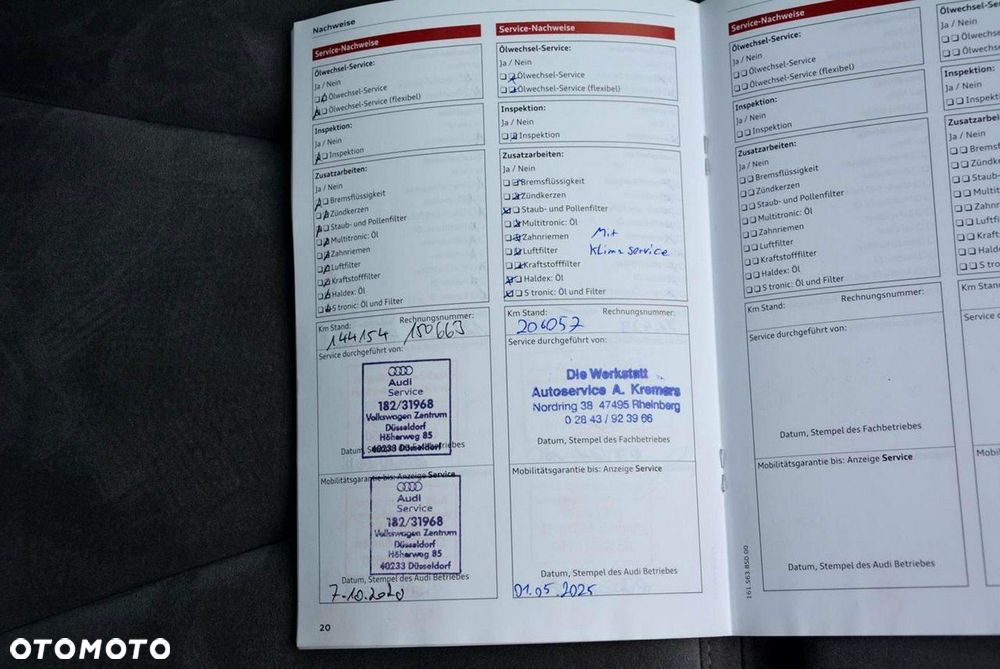 Nachweise
Service-Nachweise
Ölwechsel-Service:
Ja / Nein
Ölwechsel-Service
Ölwechsel-Service (flexibel)
Inspektion:
Ja / Nein
Inspektion
Zusatzarbeiten:
Ja / Nein
Bremsflüssigkeit
Zündkerzen
Staub- und Pollenfilter
Multitronic: Öl
Zahnriemen
Luftfilter
Kraftstofffilter
Haldex: Öl
S tronic: Öl und Filter
Km Stand: Rechnungsnummer:
144154 150663
Service durchgeführt von:
Audi
Service
182/31968
Volkswagen Zentrum
Düsseldorf
Höherweg 85
40233 Düsseldorf
Datum, Stempel des Fachbetriebes
Mobilitätsgarantie bis: Anzeige Service
Audi
Service
182/31968
Volkswagen Zentrum
Düsseldorf
Höherweg 85
40233 Düsseldorf
Datum, Stempel des Audi Betriebes
7-10.2020
20
Service-Nachweise
Ölwechsel-Service:
Ja / Nein
Ölwechsel-Service
Ölwechsel-Service (flexibel)
Inspektion:
Ja / Nein
Inspektion
Zusatzarbeiten:
Ja / Nein
Bremsflüssigkeit
Zündkerzen
Staub- und Pollenfilter
Multitronic: Öl
Zahnriemen Mit
Luftfilter Klimaservice
Kraftstofffilter
Haldex: Öl
S tronic: Öl und Filter
Km Stand: Rechnungsnummer:
204057
Service durchgeführt von:
Die Werkstatt
Autoservice A. Kremers
Nordring 38 47495 Rheinberg
0 28 43 / 92 39 66
Datum, Stempel des Fachbetriebes
Mobilitätsgarantie bis: Anzeige Service
Datum, Stempel des Audi Betriebes
01.05.2025
Service-Nachweise
Ölwechsel-Service:
Ja / Nein
Ölwechsel-Service
Ölwechsel-Service (flexibel)
Inspektion:
Ja / Nein
Inspektion
Zusatzarbeiten:
Ja / Nein
Bremsflüssigkeit
Zündkerzen
Staub- und Pollenfilter
Multitronic: Öl
Zahnriemen
Luftfilter
Kraftstofffilter
Haldex: Öl
S tronic: Öl und Filter
Km Stand: Rechnungsnummer:
Service durchgeführt von:
Datum, Stempel des Fachbetriebes
Mobilitätsgarantie bis: Anzeige Service
Datum, Stempel des Audi Betriebes
161.563.850.00
Ja / Nein
Inspektion:
Ja / Nein
Ja / Nein
Km Stand:
OTOMOTO